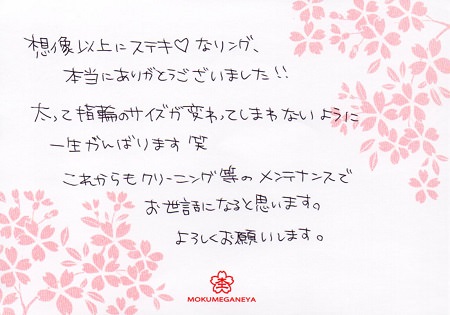 想像以上にステキ♡なリング、
本当にありがとうございました!!
太って指輪のサイズが変わってしまわないように
一生がんばります 笑
これからもクリーニング等のメンテナンスで
お世話になると思います。
よろしくお願いします。
MOKUMEGANEYA